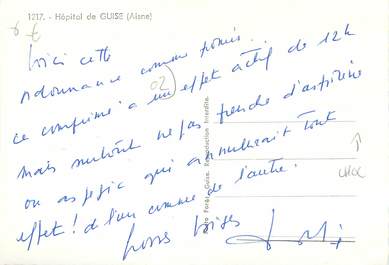 1217. - Hôpital de GUISE (Aisne)
Voici cette
ordonnance comme promis.
ce comprimé a un effet actif de 12h
02
mais surtout ne pas prendre d'aspirine
ou aspegic qui annulerait tout
effet ! de l'un comme de l'autre.
gross bises
Guise. Reproduction Interdite.